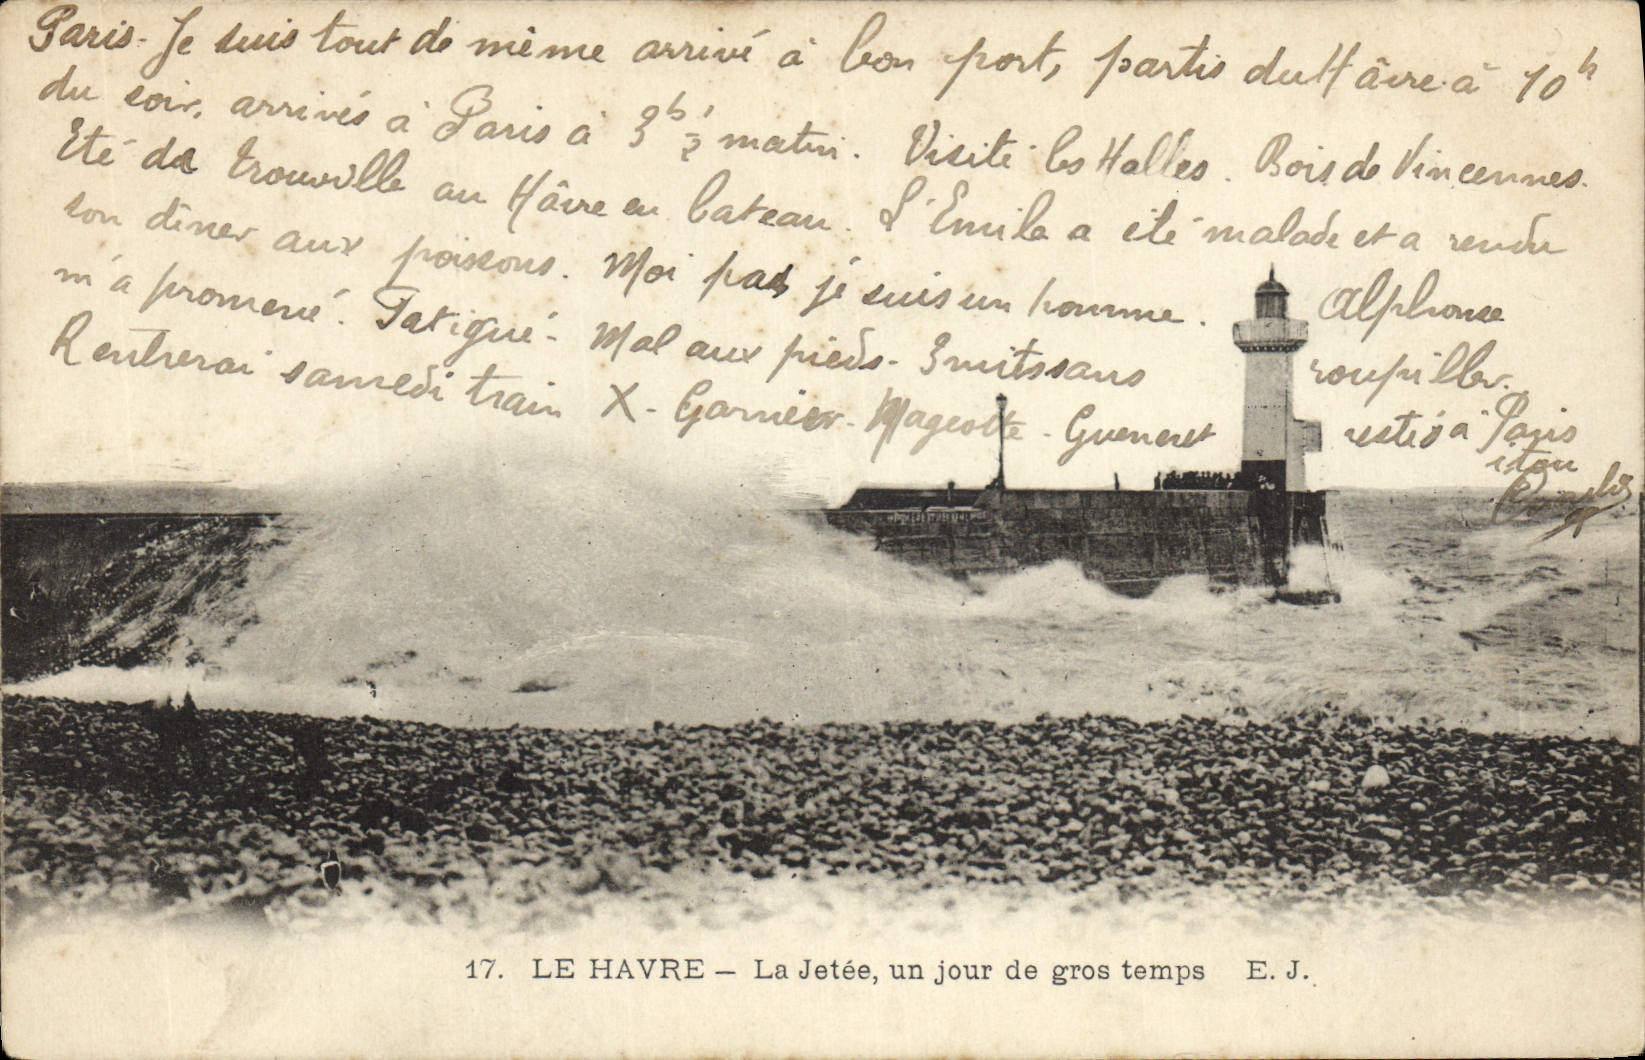 Paris - Je suis tout de même arrivé à bon port, partis du Hâvre à 10h
du soir, arrivés à Paris à 3h ½ matin. Visité les Halles. Bois de Vincennes.
Eté de Trouville au Hâvre en bateau. L'Emile a été malade et a rendu
son dîner aux poissons. Moi pas je suis un homme. Alphonse
m'a promené. Fatigué - Mal aux pieds - 3 nuits sans roupiller.
Rentrerai samedi train X - Garnier - Mageotte - Gueneret restés à Paris
itou
17. LE HAVRE – La Jetée, un jour de gros temps E. J.